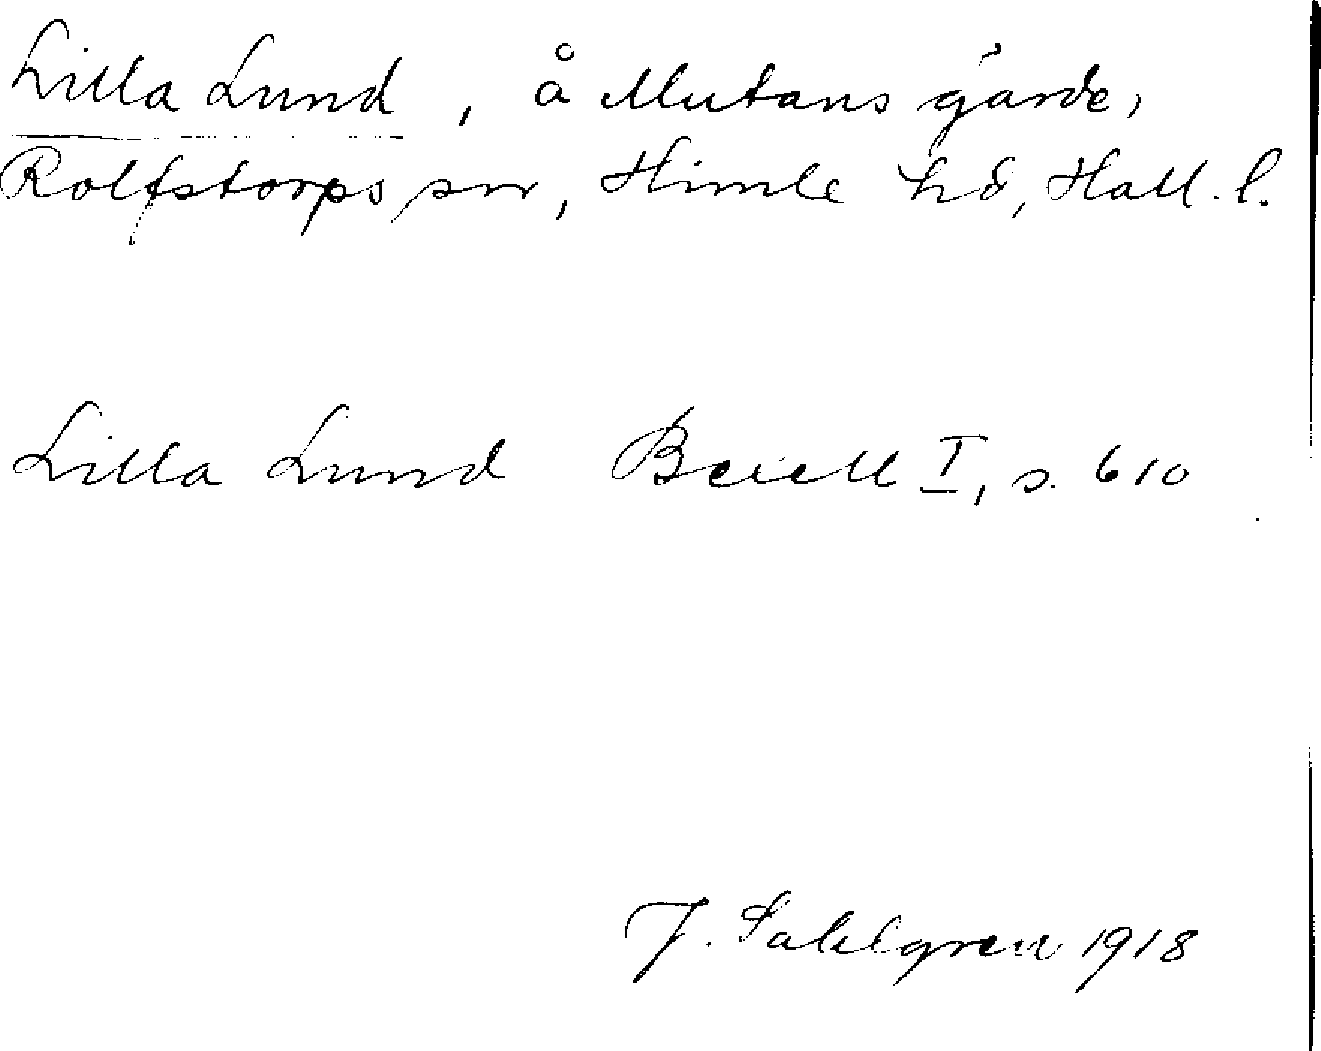 Lilla Lund, å Mutans gärde,
Rolfstorps sn, Himle hd, Hall. l.
Lilla Lund Bexell I, s. 610
J. Sahlgren 1918